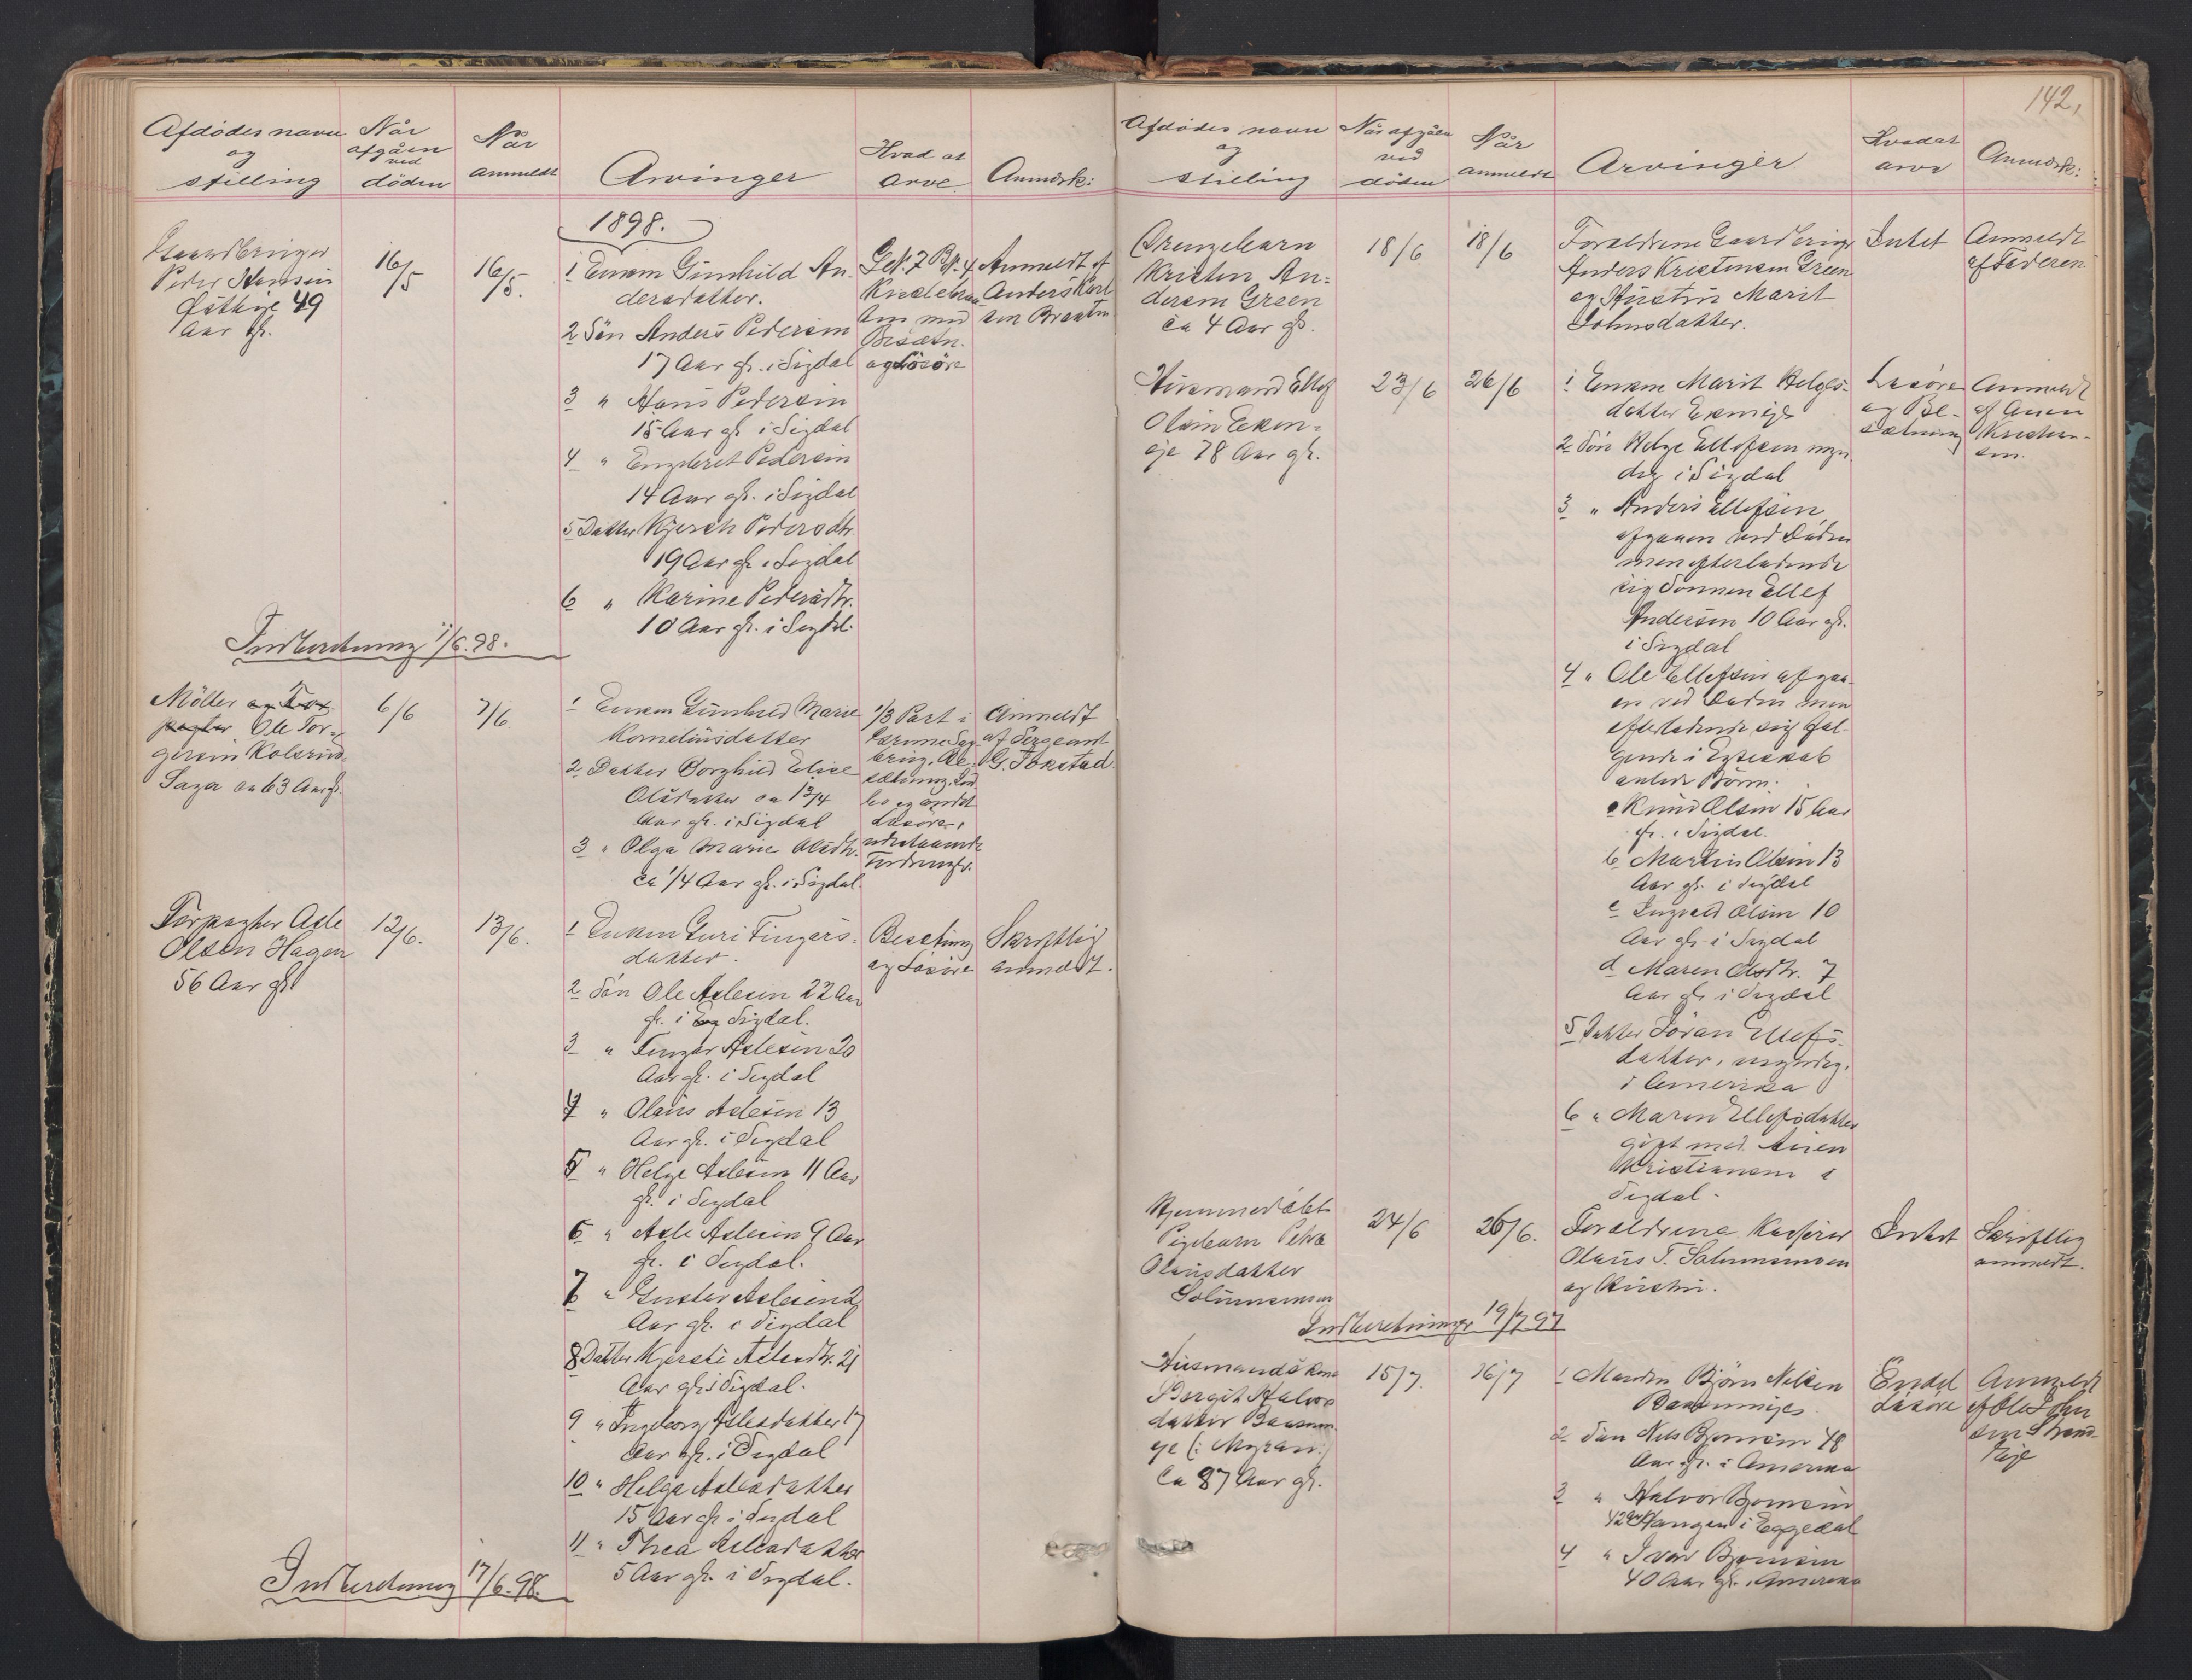 142,
Afdödes navn
og
stilling
Når
afgåen
ved
döden
Når
anmeldt
Arvinger
Hvad at
arve
Anmærk:
1898.
Gaardbruger
Peder Hansen
49
Aar gl.
16/5
16/5.
1 Enken Gunhild An-
dersdatter.
2 Sön Anders Pedersen
17 Aar gl. i Sigdal
3 " Hans Pedersen
15 Aar gl i Sigdal
4 " Engebret Pedersen
14 Aar gl. i Sigdal
5 Datter Kjersti Pedersdtr.
19 Aar gl. i Sigdal
6 " Karine Pedersdtr.
10 Aar gl. i Sigdal.
G.N. 7 B.N. 4
med
Besætn.
og Lösöre
Anmeldt af
Anders Karl
sen Braaten
Indberetning 1/6. 98.
Möller og For-
pagter Ole Tor-
gersen Kolsrud-
Saga ca 63 Aar gl.
6/6
7/6
1 Enken Gunhild Marie
Korneliusdatter
2 Datter Borghild Elise
Olsdatter ca 1 3/4
Aar gl. i Sigdal
3 " Olga Marie Olsdtr.
ca 1/4 Aar gl. i Sigdal.
1/3 Part i
Be-
sætning, Ind
bo og andet
Lösöre,
udestaaende
Fordringer.
Anmeldt
af Sergeant
G. Tokstad.
Forpagter Asle
Olsen Hagen
56 Aar gl
12/6.
13/6.
1 Enken Guri Fingars-
datter.
2 Sön Ole Aslesen 22 Aar
gl. i Eg Sigdal.
3 " Fingar Aslesen 20
Aar gl. i Sigdal
4 " Olaus Aslesen 13
Aar gl. i Sigdal
5 " Helge Aslesen 11 Aar
gl. i Sigdal
6 " Asle Aslesen 9 Aar
gl. i Sigdal.
7 " Gustav Aslesen 2
Aar gl. i Sigdal
8 Datter Kjersti Aslesdtr. 21
Aar gl. i Sigdal.
9 " Ingeborg Aslesdatter 17
Aar gl. i Sigdal
10 " Helga Aslesdatter
15 Aar gl i Sigdal
11 " Thea Aslesdatter
5 Aar gl. i Sigdal.
Besetning
og Lösöre
Skriftlig
anmeldt.
Indberetning 17/6. 98.
Afdödes navn
og
stilling
Når afgåen
ved
döden
Når
anmeldt
Arvinger
Hvad at
arve
Anmærk:
Drengebarn
Kristen An-
dersen Green
ca 4 Aar gl.
18/6
18/6
Forældrene Gaardbruger
Anders Kristensen Green
og Hustru Marit
Johnsdatter.
Intet
Anmeldt
af Faderen
Husmand Ellef
Olsen Eken-
eje 78 Aar gl.
23/6
26/6
1 Enken Marit Helges-
datter Ekeneje
2 Sön Helge Ellefsen myn
dig i Sigdal
3 " Anders Ellefsen,
afgaaen ved Döden
men efterladende
sig Sönnen Ellef
Andersen 10 Aar gl.
i Sigdal
4 " Ole Ellefsen afgaa-
en ved Döden men
efterladende sig föl-
gende i Egteskab
avlede Börn:
a Knud Olsen 15 Aar
gl. i Sigdal.
b Martin Olsen 13
Aar gl. i Sigdal
c Ingvald Olsen 10
Aar gl i Sigdal
d Maren Olsdtr. 7
Aar gl i Sigdal
5 Datter Söran Ellefs-
datter, myndig.
i Amerika
6 " Maren Ellefsdatter
gift med Auen
Kristiansen i
Sigdal.
Lösöre
og Be-
sætning
Anmeldt
af Auen
Kristian-
sen.
Hjemmedöbt
Pigebarn Petra
Olausdatter
24/6
26/6.
Forældrene Kasserer
Olaus T.
og Hustru.
Intet
Skriftlig
anmeldt.
Indberetninger 19/7 97
Husmands kone
Bergit Halvors
datter
eje (: Myran:)
Ca 87 Aar gl.
15/7.
16/7
1 Manden Björn Nilsen
2 Sön Nils Bjornsen 48
Aar gl. i Amerika
3 " Halvor Bjornsen
42 Aar i Eggedal
4 " Iver Bjornsen
40 Aar gl. i Amerika
Endel
Lösöre
Anmeldt
af Ole John
sen Strand-
eje